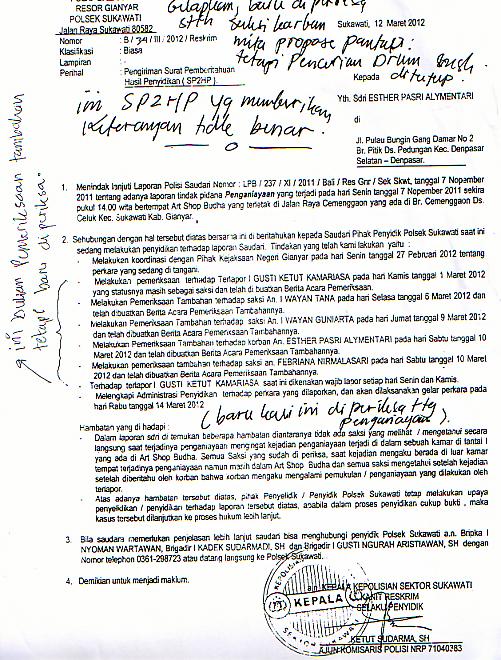 RESOR GIANYAR
POLSEK SUKAWATI
Jalan Raya Sukawati 80582
Sukawati, 12 Maret 2012
Nomor : B / 34 / III / 2012 / Reskrim
Klasifikasi : Biasa
Lampiran : -
Perihal : Pengiriman Surat Pemberitahuan
Hasil Penyidikan (SP2HP).
baru di periksa
stth
tetapi Pencurian Drum
di tutup.
Kepada
Yth. Sdri ESTHER PASRI ALYMENTARI
di
Jl. Pulau Bungin Gang Damar No 2
Br. Pitik Ds. Pedungan Kec. Denpasar
Selatan – Denpasar.
ini SP2HP yg memberikan
Keterangan tidk benar.
ini bukan Pemeriksaan tambahan
tetapi baru di periksa
1. Menindak lanjuti Laporan Polisi Saudari Nomor : LPB / 237 / XI / 2011 / Bali / Res Gnr / Sek Skwt, tanggal 7 Nopember
2011 tentang adanya laporan tindak pidana Penganiayaan yang terjadi pada hari Senin tanggal 7 Nopember 2011 sekira
pukul 14.00 wita bertempat Art Shop Budha yang terletak di Jalan Raya Cemenggaon yang ada di Br. Cemenggaon Ds.
Celuk Kec. Sukawati Kab. Gianyar.
2. Sehubungan dengan hal tersebut diatas bersama ini di beritahukan kepada Saudari Pihak Penyidik Polsek Sukawati saat ini
sedang melakukan penyidikan terhadap laporan Saudari. Tindakan yang telah kami lakukan yaitu :
- Melakukan koordinasi dengan Pihak Kejaksaan Negeri Gianyar pada hari Senin tanggal 27 Pebruari 2012 tentang
perkara yang sedang di tangani.
- Melakukan pemeriksaan terhadap Terlapor I GUSTI KETUT KAMARIASA pada hari Kamis tanggal 1 Maret 2012
yang statusnya masih sebagai saksi dan telah di buatkan Berita Acara Pemeriksaan.
- Melakukan Pemeriksaan Tambahan terhadap saksi An. I WAYAN TANA pada hari Selasa tanggal 6 Maret 2012 dan
telah dibuatkan Berita Acara Pemeriksaan Tambahannya.
- Melakukan Pemeriksaan Tambahan terhadap saksi An. I WAYAN GUNIARTA pada hari Jumat tanggal 9 Maret 2012
dan telah dibuatkan Berita Acara Pemeriksaan Tambahannya.
Melakukan Pemeriksaan Tambahan terhadap korban An. ESTHER PASRI ALYMENTARI pada hari Sabtu tanggal 10
Maret 2012 dan telah dibuatkan Berita Acara Pemeriksaan Tambahannya.
- Melakukan pemeriksaan tambahan terhadap saksi an. FEBRIANA NIRMALASARI pada hari Sabtu tanggal 10 Maret
2012 dan telah dibuatkan Berita Acara Pemeriksaan Tambahannya.
- Terhadap terlapor I GUSTI KETUT KAMARIASA saat ini dikenakan wajib lapor setiap hari Senin dan Kamis.
- Melengkapi Administrasi Penyidikan terhadap perkara yang dilaporkan, dan akan dilaksanakan gelar perkara pada
hari Rabu tanggal 14 Maret 2012
(baru kasi ini di periksa ttg
penganiayaan).
Hambatan yang di hadapi :
- Dalam laporan sdri di temukan beberapa hambatan diantaranya tidak ada saksi yang melihat / mengetahui secara
langsung saat terjadinya penganiayaan mengingat kejadian penganiayaan terjadi di dalam sebuah kamar di lantai I
yang ada di Art Shop Budha. Semua Saksi yang sudah di periksa, saat kejadian mengaku berada di luar kamar
tempat terjadinya penganiayaan namun masih dalam Art Shop Budha dan semua saksi mengetahui setelah kejadian
setelah diberitahu oleh korban bahwa korban mengaku mengalami pemukulan / penganiayaan yang dilakukan oleh
terlapor.
- Atas adanya hambatan tersebut diatas, pihak Penyelidik / Penyidik Polsek Sukawati tetap melakukan upaya
penyelidikan / penyidikan terhadap laporan tersebut diatas, apabila dalam proses penyidikan cukup bukti , maka
kasus tersebut dilanjutkan ke proses hukum lebih lanjut.
3. Bila saudara memerlukan penjelasan lebih lanjut saudari bisa menghubungi penyidik Polsek Sukawati a.n. Bripka I
NYOMAN WARTAWAN, Brigadir I KADEK SUDARMADI, SH dan Brigadir I GUSTI NGURAH ARISTIAWAN, SH dengan
Nomor telephon 0361-298723 atau datang langsung ke Polsek Sukawati.
4. Demikian untuk menjadi maklum.
a.n. KEPALA KEPOLISIAN SEKTOR SUKAWATI
KANIT RESKRIM
SELAKU PENYIDIK
KEPALA
KETUT SUDARMA, SH
AJUN KOMISARIS POLISI NRP 71040383